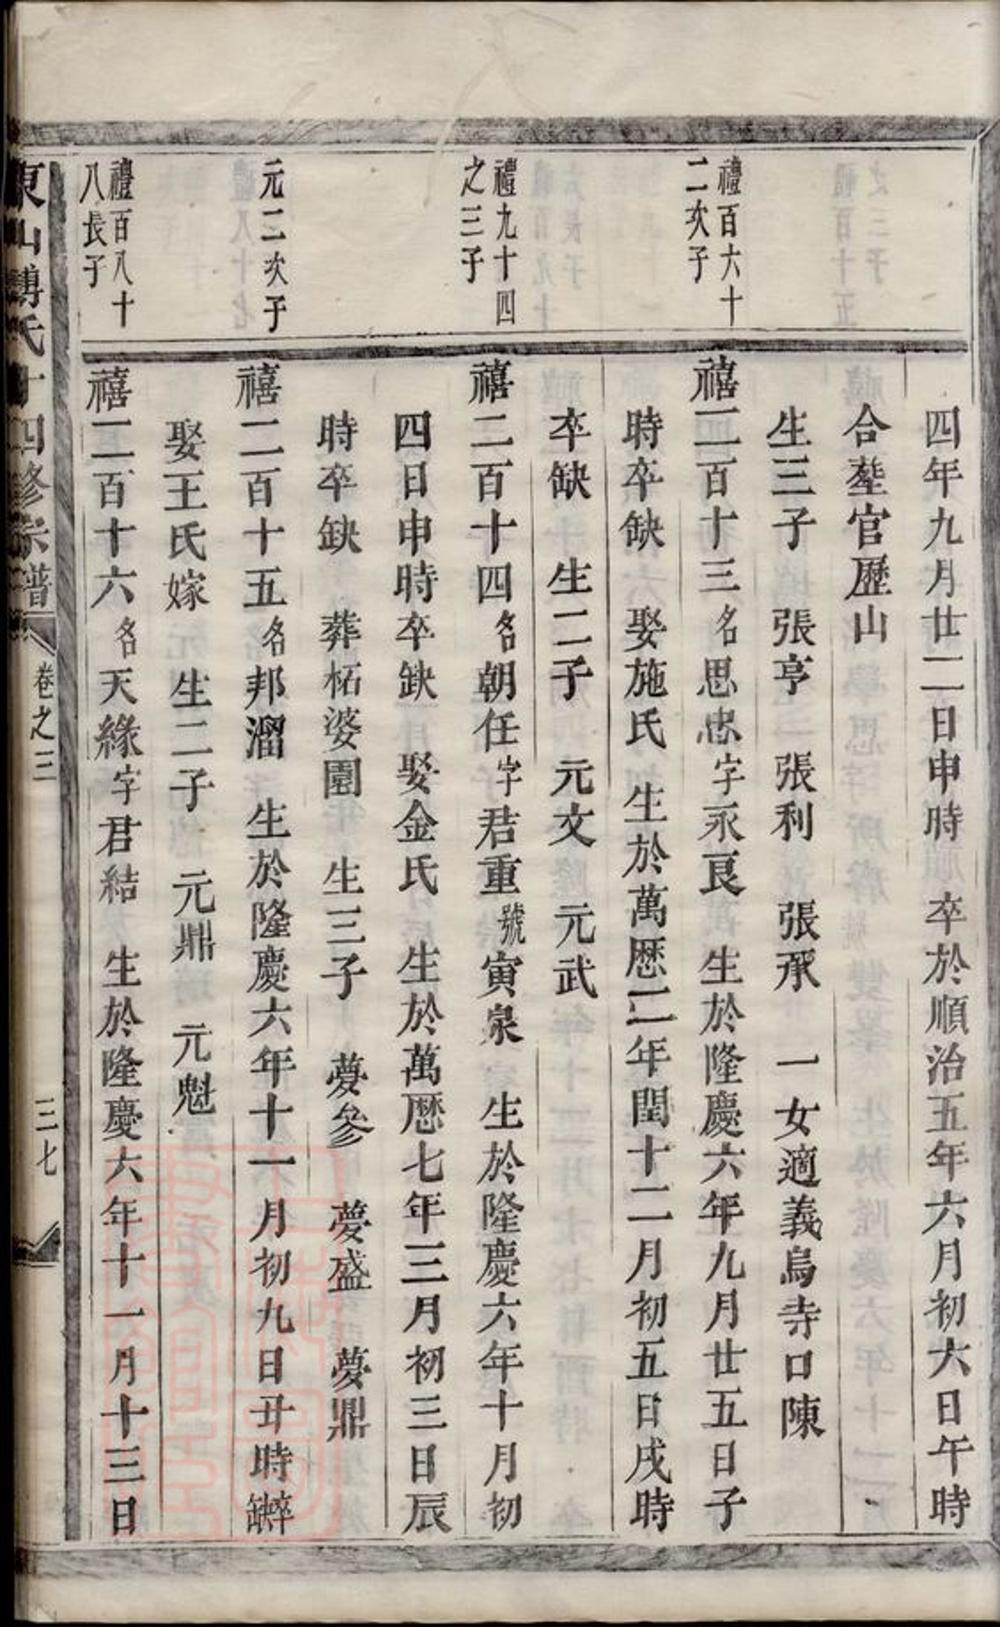 四年九月廿二日申時　卒於順治五年六月初六日午時
合塟官歷山
生三子　張亨　張利　張承　一女適義烏寺口陳
禮百六十
二次子
禧二百十三名思忠字永良　生於隆慶六年九月廿五日子
時卒缺　娶施氏　生於萬歷二年閏十二月初五日戌時
卒缺　生二子　元文　元武
禮九十四
之三子
禧二百十四名朝任字君重號寅泉　生於隆慶六年十月初
四日申時卒缺　娶金氏　生於萬歷七年三月初三日辰
時卒缺　葬柘婆園　生三子　夢參　夢盛　夢鼎
元二次子
禧二百十五名邦溜　生於隆慶六年十一月初九日丑時
娶王氏嫁　生二子　元鼎　元魁
禮百八十
八長子
禧二百十六名天緣字君結　生於隆慶六年十一月十三日
東山傅氏十四修宗譜
卷之三
三七